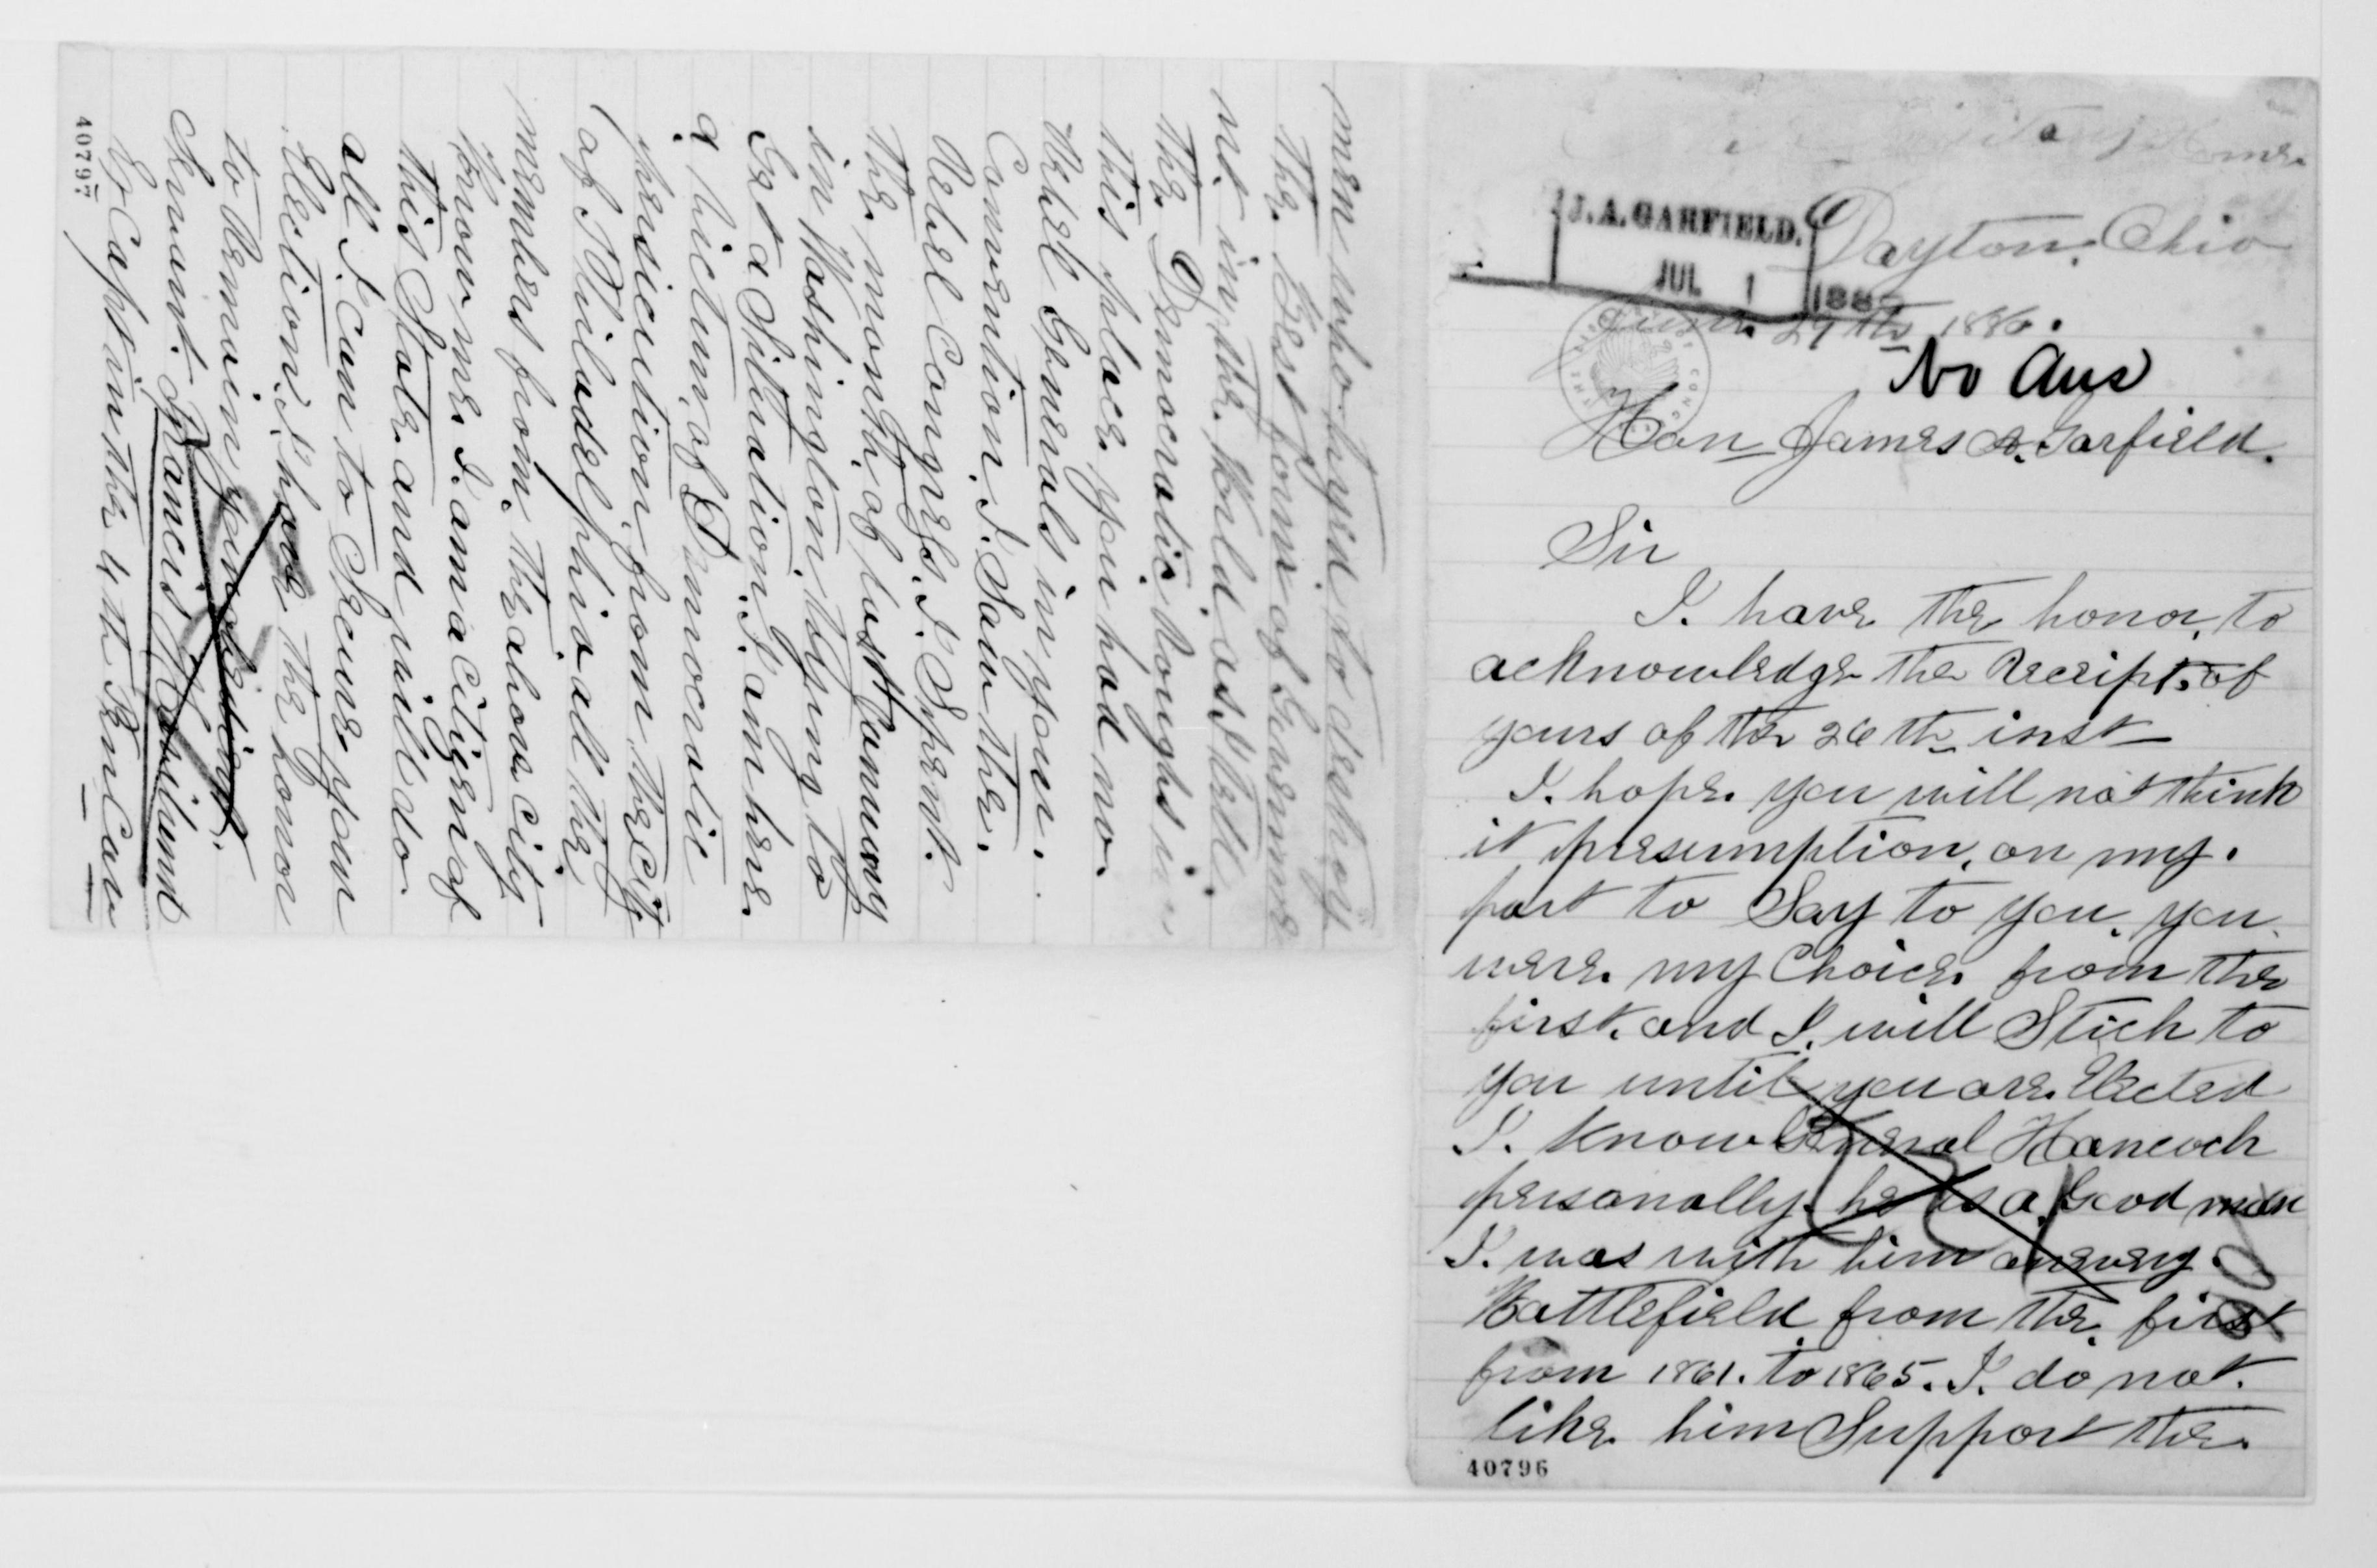 Home
Dayton, Ohio
J.A.GARFIELD.
JUL 1 188
June 29th 1880.
No Ans
Hon James A. Garfield.
Sir
I. have the honor, to
acknowledge the Receipt. of
yours of the 26th inst
I. hope. you will not think
it presumption, on my.
part to Say to you, you
were. my Choice. from the
first. and I. will Stick to
you until you are. Elected
I. Know General Hancock
personally. he is a Good man
I. was with him on every.
Battlefield from the. first
from 1861. to 1865. I. do not.
like him Support the.
40796
men who tryed to destroy
the. Best form of Governme
nt in the. World. as Well
the Democratic Roughs in
this place. you had no.
Rebel Generals in your.
Convention. I. Saw the.
Rebel Congress. I. Spent.
the. month, of last January
in Washington, trying to
Get a Situation. I. am here.
a victim, of Democratic
persicution, from the City
of Philadelphia all the.
members from. the above City
Know me. I. am a Citizen of
this State. and will do.
all I. Can to Secure your
Election. I have the honor
to Remain your obedient.
Servant. Francis
Ex Capt in the 4th Pen Cav
40797